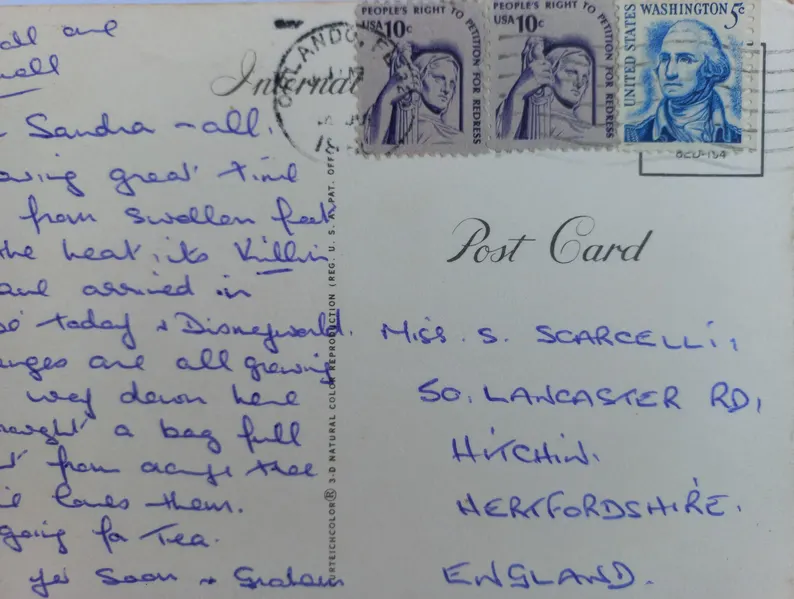 all are
well
Sandra - all.
great time
from swollen feet
the heat, its killin
and arrived in
today & Disneyworld.
are all growing
way down here
a bag full
from orange tree
loves them.
going for Tea.
Soon & Graham
International
PEOPLE'S RIGHT TO PETITION FOR REDRESS
USA 10c
PEOPLE'S RIGHT TO PETITION FOR REDRESS
USA 10c
UNITED STATES
WASHINGTON 5c
ORLANDO, FL
CURTEICHCOLOR® 3-D NATURAL COLOR REPRODUCTION (REG. U. S. A. PAT. OFF.
Post Card
Miss. S. SCARCELLI,
50, LANCASTER RD,
HITCHIN.
HERTFORDSHIRE.
ENGLAND.